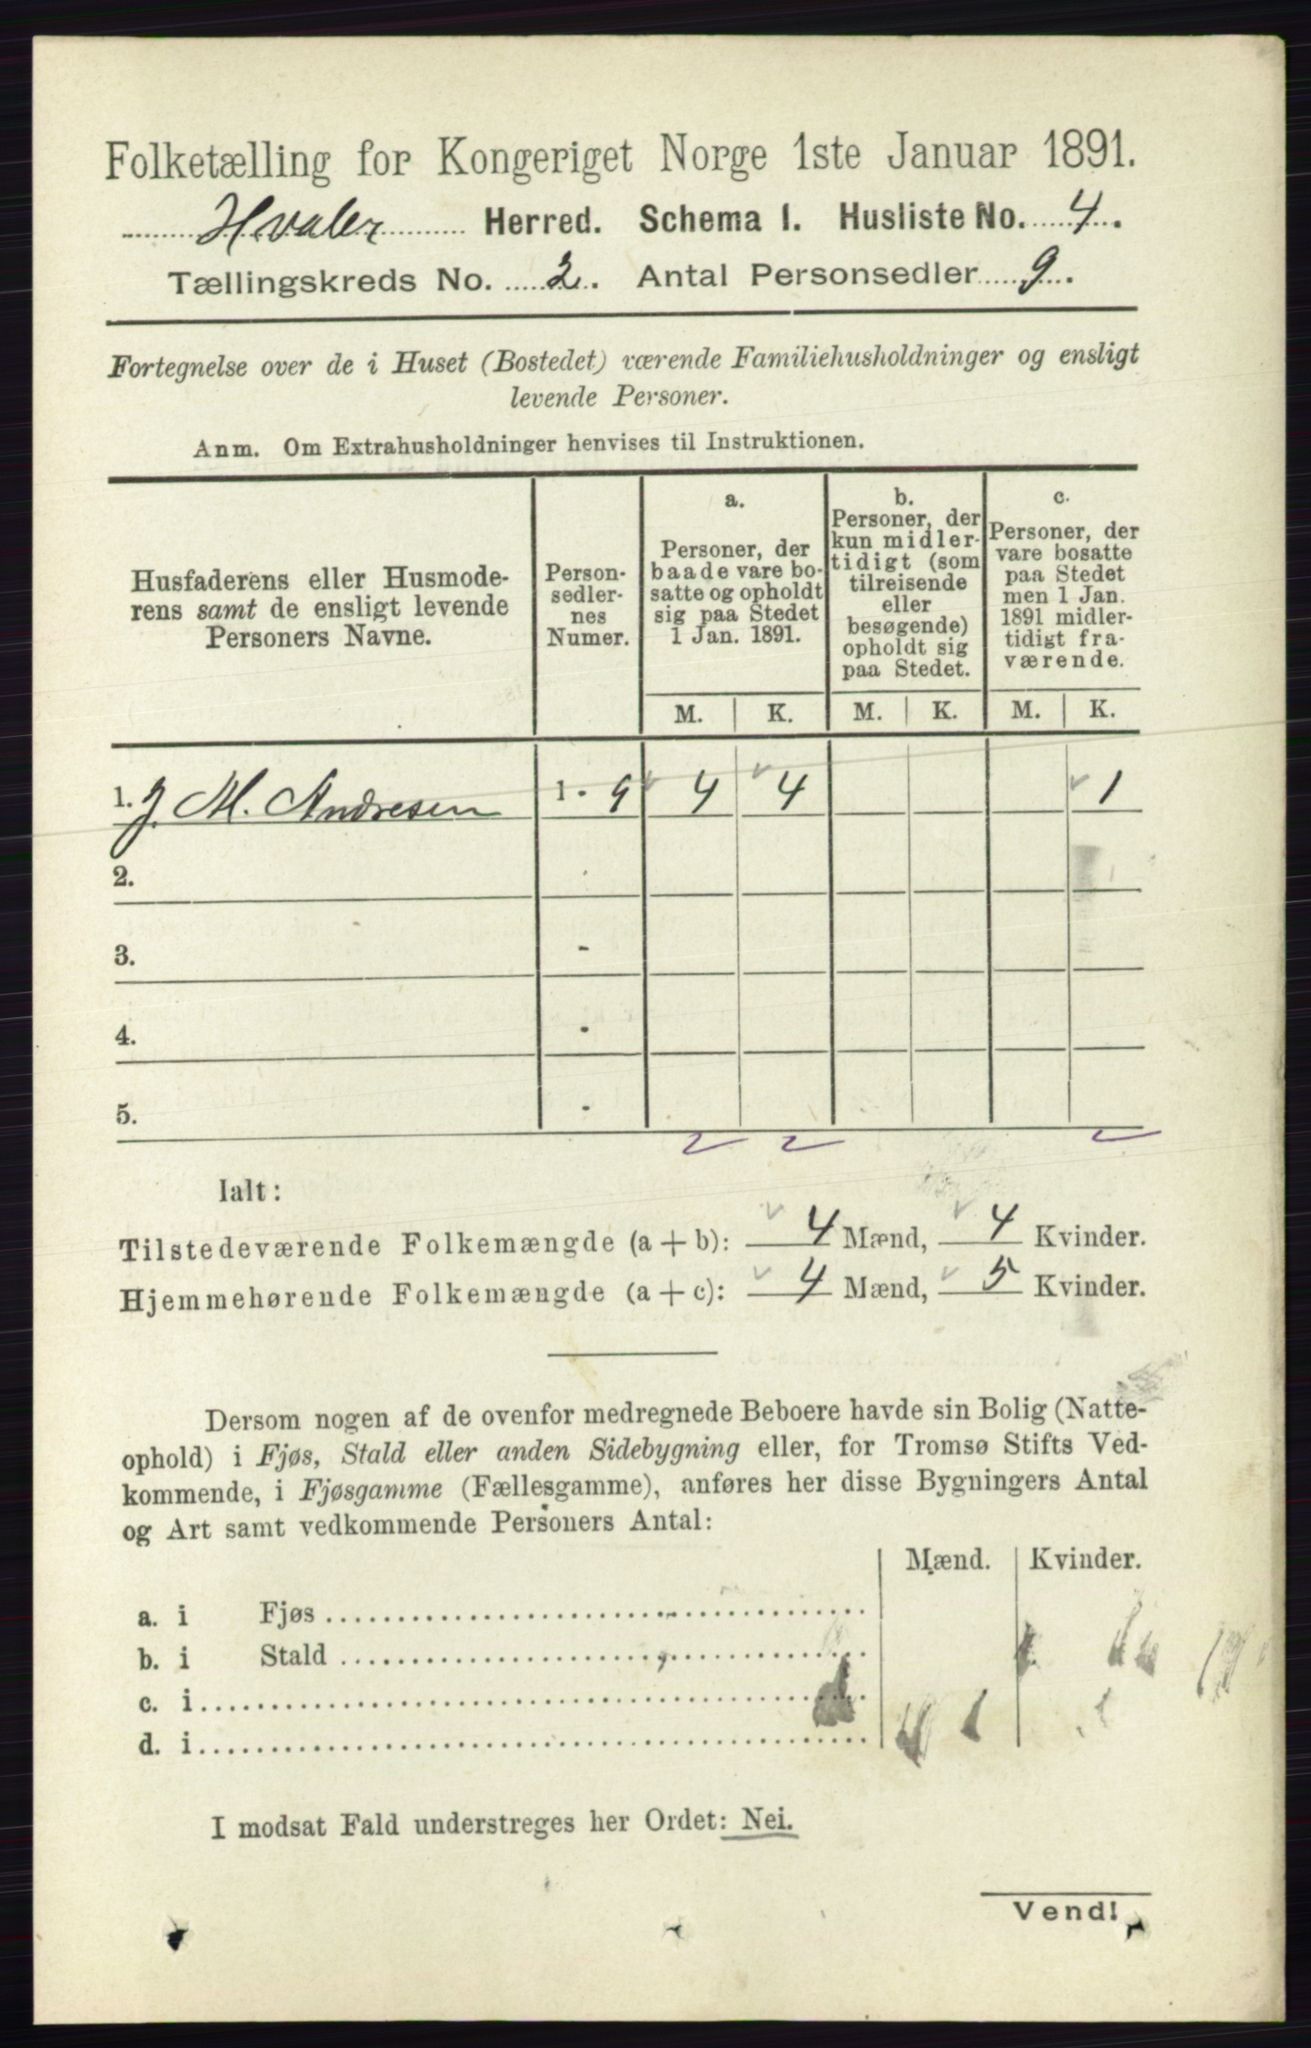 Folketælling for Kongeriget Norge 1ste Januar 1891.
Hvaler Herred. Schema I. Husliste No. 4.
Tællingskreds No. 2. Antal Personsedler 9.
Fortegnelse over de i Huset (Bostedet) værende Familiehusholdninger og ensligt
levende Personer.
Anm. Om Extrahusholdninger henvises til Instruktionen.
Husfaderens eller Husmode-
rens samt de ensligt levende
Personers Navne.
Person-
sedler-
nes
Numer.
a.
Personer, der
baade vare bo-
satte og opholdt
sig paa Stedet
1 Jan. 1891.
b.
Personer, der
kun midler-
tidigt (som
tilreisende
eller
besøgende)
opholdt sig
paa Stedet.
c.
Personer, der
vare bosatte
paa Stedet
men 1 Jan.
1891 midler-
tidigt fra-
værende.
M. K. M. K. M. K.
1. J. M. Andresen 1 - 9 4 4 1
2.
3. -
4. -
5. -
Ialt:
Tilstedeværende Folkemængde (a + b): 4 Mænd, 4 Kvinder.
Hjemmehørende Folkemængde (a + c): 4 Mænd, 5 Kvinder.
Dersom nogen af de ovenfor medregnede Beboere havde sin Bolig (Natte-
ophold) i Fjøs, Stald eller anden Sidebygning eller, for Tromsø Stifts Ved-
kommende, i Fjøsgamme (Fællesgamme), anføres her disse Bygningers Antal
og Art samt vedkommende Personers Antal:
Mænd. Kvinder.
a. i Fjøs
b. i Stald
c. i
d. i
I modsat Fald understreges her Ordet: Nei.
Vend!